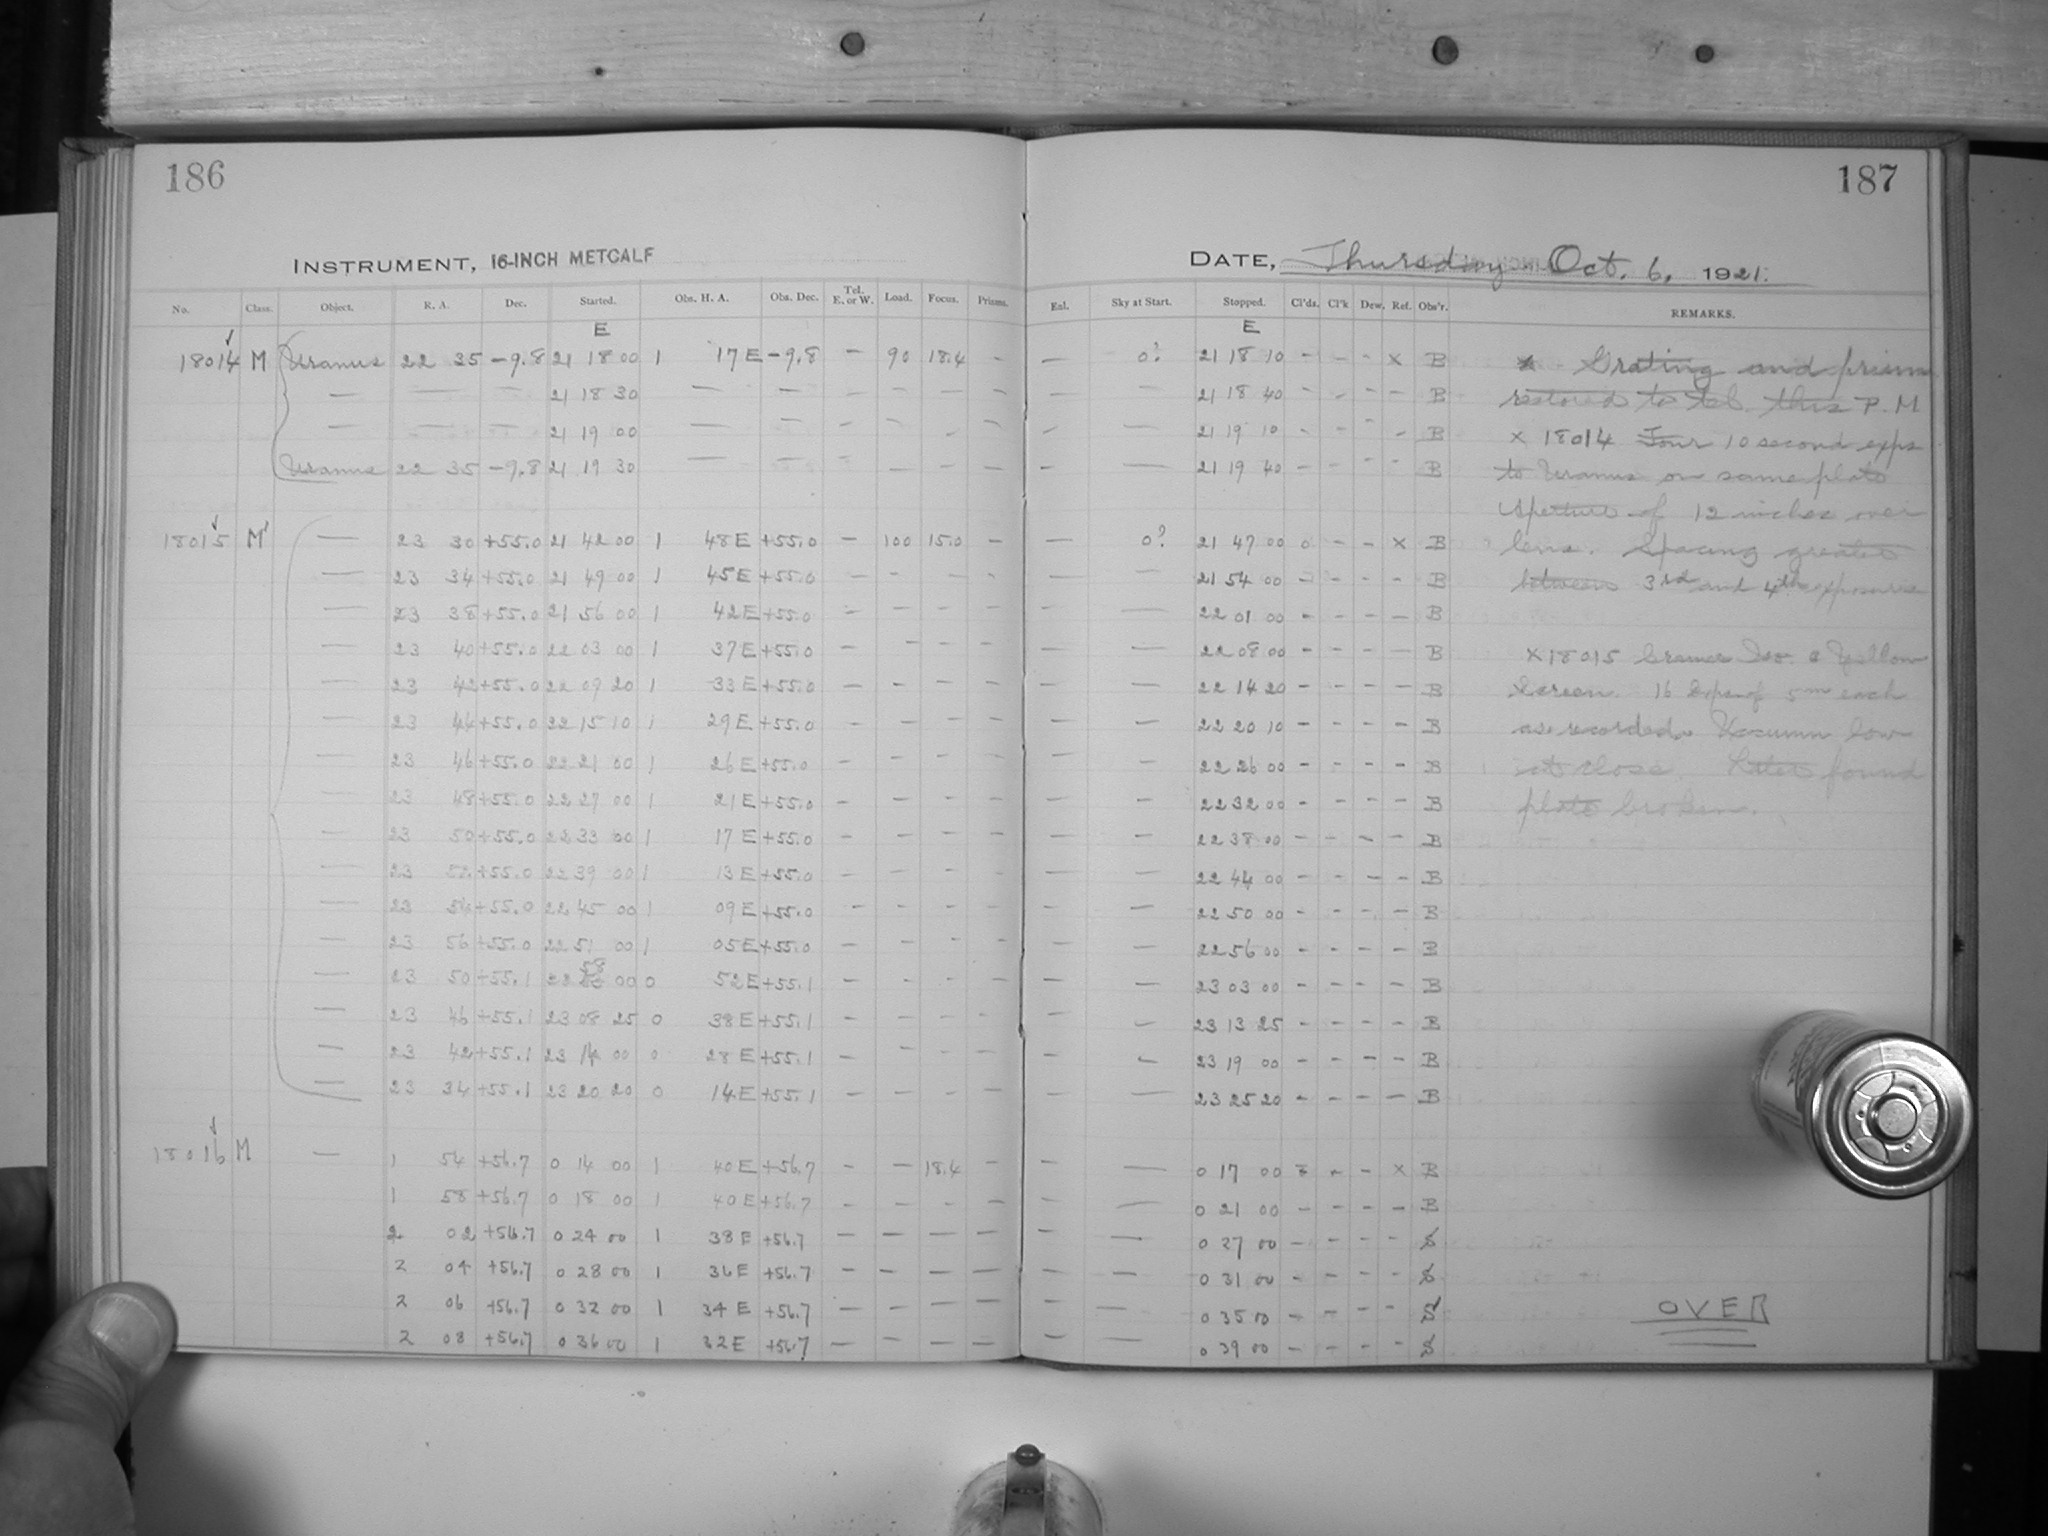 186
187
INSTRUMENT, 16-INCH METCALF
DATE, Thursday Oct. 6, 1921.
No. Class. Object. R. A. Dec. Started. Obs. H. A. Obs. Dec. Tel. E. or W. Load. Focus. Prisms. Enl. Sky at Start. Stopped. Cl'ds. Cl'k Dew. Ref. Obs'r. REMARKS.
E E
18014 M Uranus 22 35 -9.8 21 18 00 1 17 E -9.8 — 90 18.4 - — 0? 21 18 10 - - - x B
— — — 21 18 30 — — - - - - — — 21 18 40 - - - - B
— — — 21 19 00 — — - - - - - — 21 19 10 - - - - B
Uranus 22 35 -9.8 21 19 30 — — - - - - — — 21 19 40 - - - - B
18015 M — 23 30 +55.0 21 42 00 1 48 E +55.0 — 100 15.0 - — 0? 21 47 00 0 - - x B
— 23 34 +55.0 21 49 00 1 45 E +55.0 — - - - — — 21 54 00 - - - - B
— 23 38 +55.0 21 56 00 1 42 E +55.0 — - - - — — 22 01 00 - - - - B
— 23 40 +55.0 22 03 00 1 37 E +55.0 — - - - — — 22 08 00 - - - - B
— 23 42 +55.0 22 09 20 1 33 E +55.0 — - - - — — 22 14 20 - - - - B
— 23 44 +55.0 22 15 10 1 29 E +55.0 — - - - — — 22 20 10 - - - - B
— 23 46 +55.0 22 21 00 1 26 E +55.0 — - - - — — 22 26 00 - - - - B
— 23 48 +55.0 22 27 00 1 21 E +55.0 — - - - — — 22 32 00 - - - - B
— 23 50 +55.0 22 33 00 1 17 E +55.0 — - - - — — 22 38 00 - - - - B
— 23 52 +55.0 22 39 00 1 13 E +55.0 — - - - — — 22 44 00 - - - - B
— 23 54 +55.0 22 45 00 1 09 E +55.0 — - - - — — 22 50 00 - - - - B
— 23 56 +55.0 22 51 00 1 05 E +55.0 — - - - — — 22 56 00 - - - - B
— 23 50 +55.1 22 58 00 0 52 E +55.1 — - - - — — 23 03 00 - - - - B
— 23 46 +55.1 23 08 25 0 38 E +55.1 — - - - — — 23 13 25 - - - - B
— 23 42 +55.1 23 14 00 0 28 E +55.1 — - - - — — 23 19 00 - - - - B
— 23 34 +55.1 23 20 20 0 14 E +55.1 — - - - — — 23 25 20 - - - - B
18016 M — 1 54 +56.7 0 14 00 1 40 E +56.7 - — 18.4 - - — 0 17 00 - - x B
1 58 +56.7 0 18 00 1 40 E +56.7 - - - - — — 0 21 00 - - - - B
2 02 +56.7 0 24 00 1 38 E +56.7 — — — — — — 0 27 00 - - - - S
2 04 +56.7 0 28 00 1 36 E +56.7 — — — — — — 0 31 00 - - - - S
2 06 +56.7 0 32 00 1 34 E +56.7 — — — — — — 0 35 00 - - - - S
2 08 +56.7 0 36 00 1 32 E +56.7 — — — — — — 0 39 00 - - - - S
x Grating and prism
restored to tel. this P.M
x 18014 Four 10 second exps
to Uranus on same plate
Aperture of 12 inches over
lens. Spacing greater
between 3rd and 4th exposures
x 18015 Cramer Iso. & Yellow
Screen. 16 Exps of 5m each
as recorded. Vacuum low
at close. Later found
plate broken.
OVER